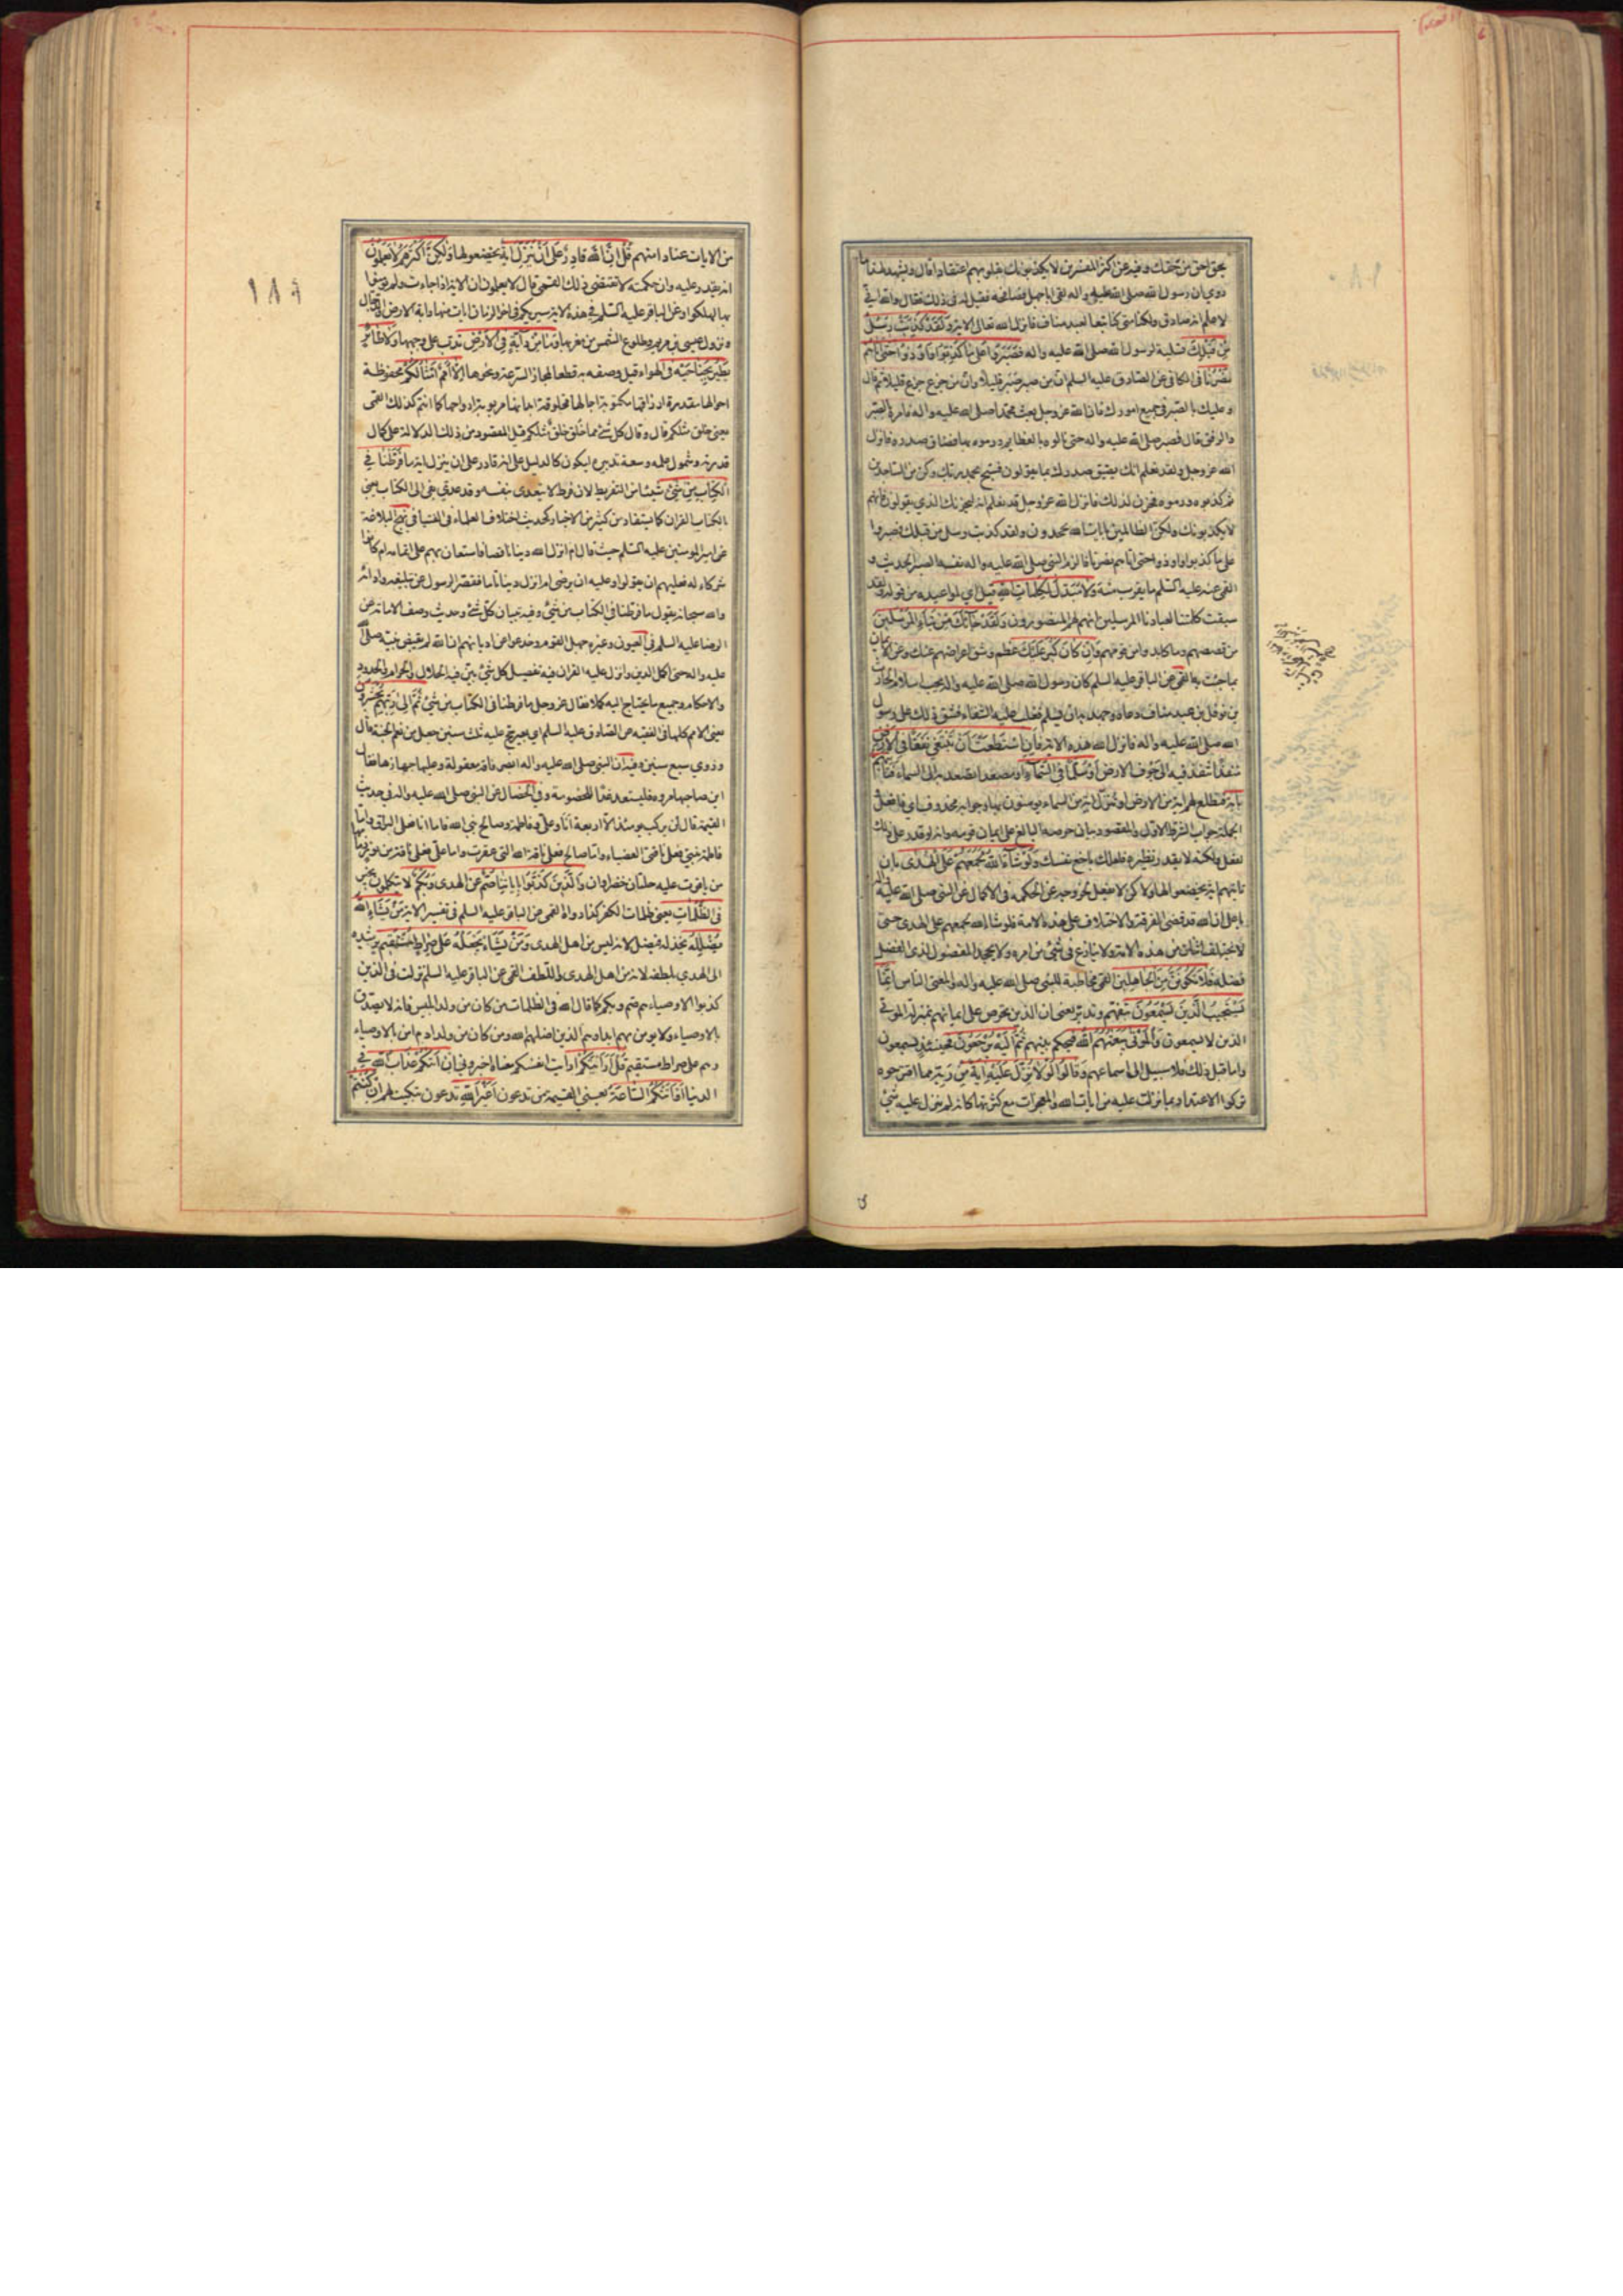 بحق احق من حقك وفيه عن اكثر المفسرين لا يكذبونك بقلوبهم اعتقادا قال ويشهد لهذا ما
روي ان رسول الله صلى الله عليه واله لقى ابا جهل فصافحه فقيل له فى ذلك فقال والله اني
لاعلم انه صادق ولكنا متى كنا تبعا لعبد مناف فانزل الله تعالى الاية وَلَقَدْ كُذِّبَتْ رُسُلٌ
مِنْ قَبْلِكَ تسلية لرسول الله صلى الله عليه واله فَصَبَرُوا عَلى ما كُذِّبُوا وَاُوذُوا حَتّى اَتيهُمْ
نَصْرُنا فى الكافى عن الصادق عليه السلم ان من صبر صبر قليلا وان من جزع جزع قليلا ثم قال
و عليك بالصبر فى جميع امورك فان الله عز وجل بعث محمدا صلى الله عليه واله فامره بالصبر
والرفق قال فصبر صلى الله عليه واله حتى نالوه بالعظايم ورموه بها فضاق صدره فانزل
الله عز وجل ولقد نعلم انك يضيق صدرك بما يقولون فسبح بحمد ربك وكن من الساجدين
ثم كذبوه ورموه فحزن لذلك فانزل الله عز وجل قد نعلم انه ليحزنك الذي يقولون فانهم
لا يكذبونك ولكن الظالمين بايات الله يجحدون ولقد كذبت رسل من قبلك فصبروا
على ما كذبوا واوذوا حتى اتاهم نصرنا فالزم النبى صلى الله عليه واله نفسه الصبر الحديث و
القمى عنه عليه السلم ما يقرب منه وَلا مُبَدِّلَ لِكَلِماتِ اللهِ قيل اى لمواعيده من قوله ولقد
سبقت كلمتنا لعبادنا المرسلين انهم لهم المنصورون وَلَقَدْ جاءَكَ مِنْ نَبَاِ الْمُرْسَلينَ
من قصصهم وما كابدوا من قومهم وَاِنْ كانَ كَبُرَ عَلَيْكَ عظم وشق اعراضهم عنك وعن الايمان
بما جئت به القمى عن الباقر عليه السلم كان رسول الله صلى الله عليه واله يحب اسلام الحارث
بن نوفل بن عبد مناف دعاه وجهد به ان يسلم فغلب عليه الشقاء فشق ذلك على رسول
الله صلى الله عليه واله فانزل الله هذه الاية فَاِنِ اسْتَطَعْتَ اَنْ تَبْتَغِيَ نَفَقًا فِى الْاَرْضِ
منفذا تنفذ فيه الى جوف الارض اَوْ سُلَّمًا فِى السَّماءِ او مصعدا تصعد به الى السماء فَتَأْتِيَهُمْ
بِايَةٍ فتطلع لهم اية من الارض او تنزل اية من السماء يومنون بها وجوابه محذوف اى فافعل
الجملة جواب الشرط الاول والمقصود بيان حرصه البالغ على ايمان قومه وانه لو قدر على ذلك
لفعل ولكنه لا يقدر نظيره فلعلك باخع نفسك وَلَوْ شاءَ اللهُ لَجَمَعَهُمْ عَلَى الْهُدى بان
تاتيهم اية يخضعوا لها ولاكن لا يفعل لخروجه عن الحكمة و فى الاكمال عن النبى صلى الله عليه واله
يا على ان الله قد قضى الفرقة والاختلاف على هذه الامة فلو شاء الله لجمعهم على الهدى حتى
لا يختلف اثنان من هذه الامة ولا ينازع فى شئ من امره ولا يجحد المفضول لذى الفضل
فضله فَلا تَكُونَنَّ مِنَ الْجاهِلينَ القمى مخاطبة للنبى صلى الله عليه واله والمعنى الناس اِنَّما
يَسْتَجيبُ الَّذينَ يَسْمَعُونَ بتفهم وتدبر يعنى ان الذين تحرص على ايمانهم بمنزلة الموتى
الذين لا يسمعون وَالْمَوْتى يَبْعَثُهُمُ اللهُ فيحكم بينهم ثُمَّ اِلَيْهِ يُرْجَعُونَ فحينئذ يسمعون
واما قبل ذلك فلا سبيل الى اسماعهم وَقالُوا لَوْلا نُزِّلَ عَلَيْهِ ايَةٌ مِنْ رَبِّه مما اقترحوه
تركوا الاعتداد بما نزلت عليه من ايات الله والمعجزات مع كثرتها كانه لم ينزل عليه شئ
١٨٩
من الايات عنادا منهم قُلْ اِنَّ اللهَ قادِرٌ عَلى اَنْ يُنَزِّلَ ايَةً يخضعوا لها وَلكِنَّ اَكْثَرَهُمْ لا يَعْلَمُونَ
انه يقدر عليه وان حكمته لا تقتضى ذلك القمى قال لا يعلمون ان الاية اذا جاءت ولم يومنوا
بها لهلكوا وعن الباقر عليه السلم فى هذه الاية سيريكم فى اخر الزمان ايات منها دابة الارض والدجال
ونزول عيسى بن مريم وطلوع الشمس من مغربها وَما مِنْ دابَّةٍ فِى الْاَرْضِ تدب على وجهها وَلا طائِرٍ
يَطيرُ بِجَناحَيْهِ فى الهواء قيل وصفه به قطعا لمجاز السرعة ونحوها اِلّا اُمَمٌ اَمْثالُكُمْ محفوظة
احوالها مقدرة ارزاقها مكتوبة اجالها مخلوقة ابدانها مربوبة ارواحها كما انتم كذلك القمى
يعنى خلق مثلكم قال وقال كل شئ مما خلق خلق مثلكم قيل المقصود من ذلك الدلالة على كمال
قدرته وشمول علمه وسعة تدبيره ليكون كالدليل على انه قادر على ان ينزل اية ما فَرَّطْنا فِى
الْكِتابِ مِنْ شَيْءٍ شيئا من التفريط لان فرط لا يتعدى بنفسه وقد عدى بفى الى الكتاب يعنى
بالكتاب القران كما يستفاد من كثير من الاخبار كحديث اختلاف العلماء فى الفتيا فى نهج البلاغة
عن امير المومنين عليه السلم حيث قال ام انزل الله دينا ناقصا فاستعان بهم على اتمامه ام كانوا
شركاء له فعليهم ان يقولوا وعليه ان يرضى ام انزل دينا تاما فقصر الرسول عن تبليغه وادائه
والله سبحانه يقول ما فرطنا فى الكتاب من شئ وفيه تبيان كل شئ وحديث وصف الامامة عن
الرضا عليه السلم فى العيون وغيره جهل القوم وخدعوا عن اديانهم ان الله لم يقبض نبيه صلى الله
عليه واله حتى اكمل الدين وانزل عليه القران فيه تفصيل كل شئ بين فيه الحلال والحرام والحدود
والاحكام وجميع ما يحتاج اليه كملا فقال عز وجل ما فرطنا فى الكتاب من شئ ثُمَّ اِلى رَبِّهِمْ يُحْشَرُونَ
يعنى الامم كلها فى الفقيه عن الصادق عليه السلم اى بعير حج عليه ثلث سنين جعل من نعم الجنة قال
و روي سبع سنين وفيه ان النبى صلى الله عليه واله ابصر ناقة معقولة وعليها جهازها فقال
اين صاحبها مروه فليستعد غدا للخصومة وفى الخصال عن النبى صلى الله عليه واله فى حديث
القيمة قال لن يركب يومئذ الا اربعة انا وعلى وفاطمة وصالح نبى الله فاما انا فعلى البراق واما
فاطمة بنتى فعلى ناقتى العضباء واما صالح فعلى ناقة الله التى عقرت واما على فعلى ناقة من نور زمامها
من ياقوت عليه حلتان خضراوان وَالَّذينَ كَذَّبُوا بِاياتِنا صُمٌّ عن الهدى وَبُكْمٌ لا يتكلمون بخير
فِى الظُّلُماتِ يعنى ظلمات الكفر كذا رواه القمى عن الباقر عليه السلم فى تفسير الاية مَنْ يَشَاِ اللهُ
يُضْلِلْهُ يخذله فيضل لانه ليس من اهل الهدى وَمَنْ يَشَأْ يَجْعَلْهُ عَلى صِراطٍ مُسْتَقيمٍ يرشده
الى الهدى بلطفه لانه من اهل الهدى واللطف القمى عن الباقر عليه السلم نزلت فى الذين
كذبوا الاوصياء هم صم وبكم كما قال الله فى الظلمات من كان من ولد ابليس فانه لا يصدق
بالاوصياء ولا يومن بهم ابدا وهم الذين اضلهم الله ومن كان من ولد ادم امن بالاوصياء
وهم على صراط مستقيم قُلْ اَرَاَيْتَكُمْ ارايت انفسكم معناه اخبرونى اِنْ اَتيكُمْ عَذابُ اللهِ فى
الدنيا اَوْ اَتَتْكُمُ السّاعَةُ يعنى القيمة من تدعون اَغَيْرَ اللهِ تَدْعُونَ تبكيت لهم اِنْ كُنْتُمْ